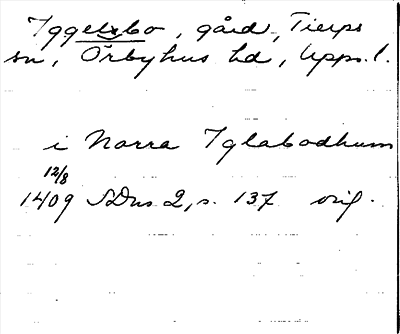 Iggelsbo, gård, Tierps
sn, Örbyhus hd, Upps.l.
i Norra Iglabodhum
12/8
1409 SDns 2, s. 137 orig.